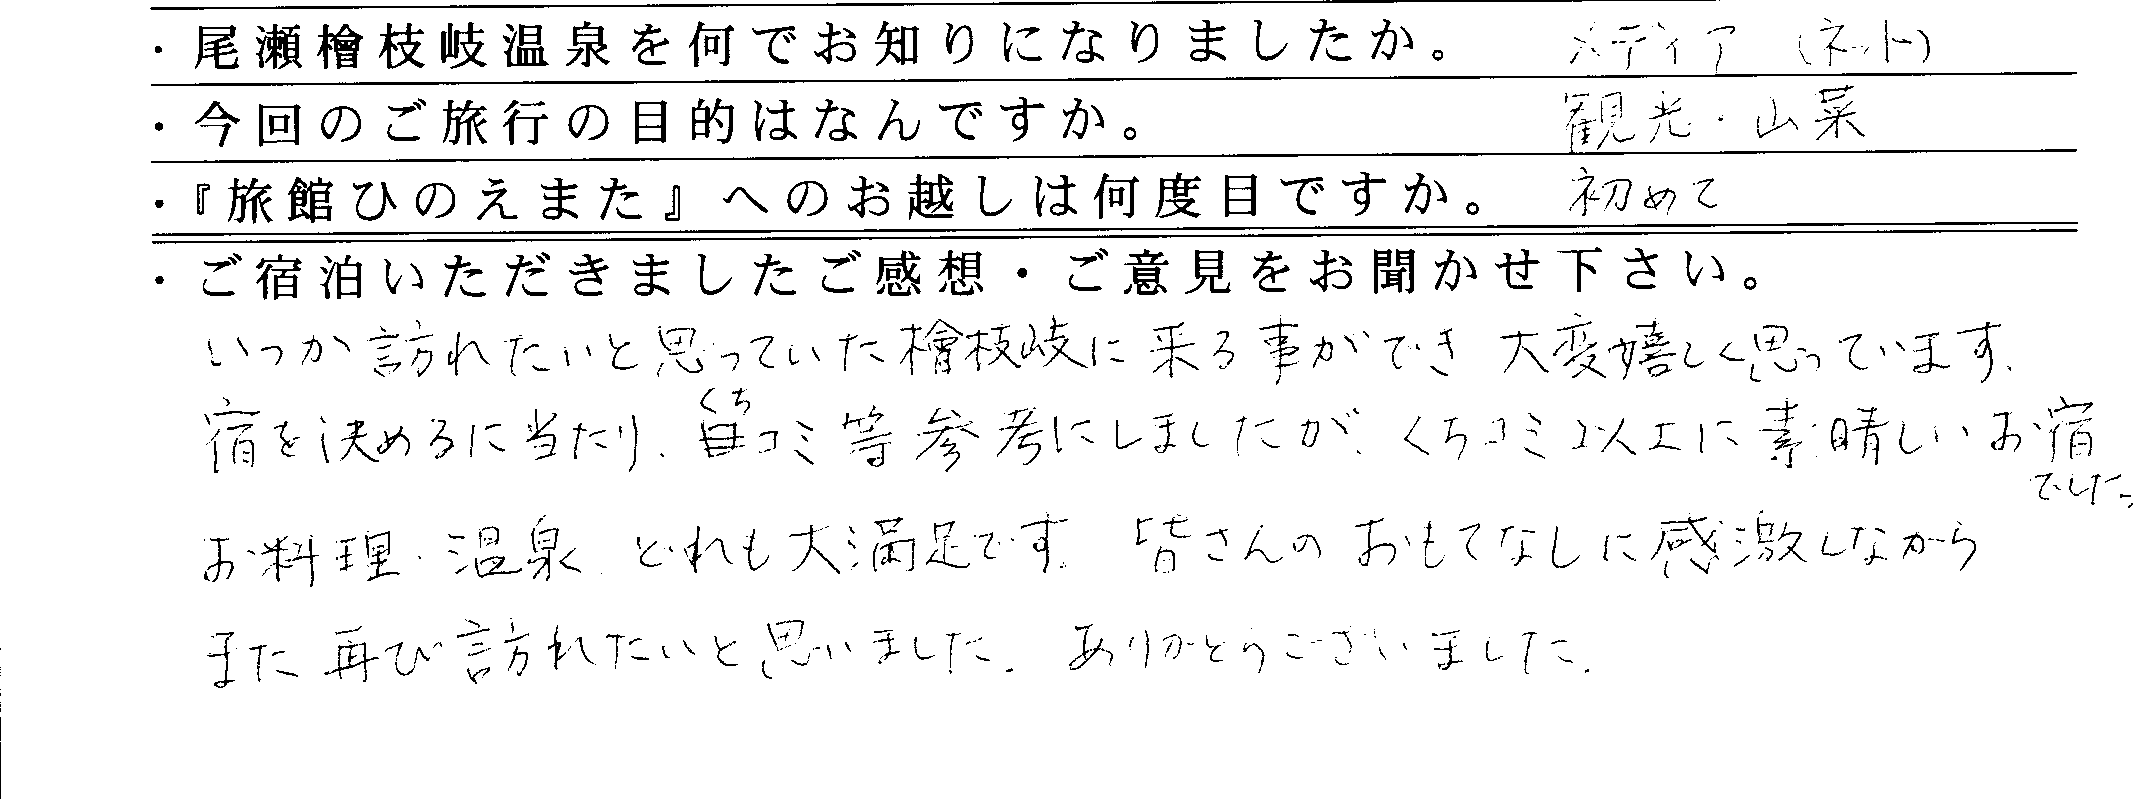 ・尾瀬檜枝岐温泉を何でお知りになりましたか。 メディア (ネット)
・今回のご旅行の目的はなんですか。 観光・山菜
・『旅館ひのえまた』へのお越しは何度目ですか。 初めて
・ご宿泊いただきましたご感想・ご意見をお聞かせ下さい。
いつか訪れたいと思っていた檜枝岐に来る事ができ 大変嬉しく思っています.
宿を決めるに当たり、くちコミ等参考にしましたが、くちコミ以上に素晴しいお宿
でした。
お料理・温泉 どれも大満足です. 皆さんのおもてなしに感激しながら
また再び訪れたいと思いました. ありがとうございました.